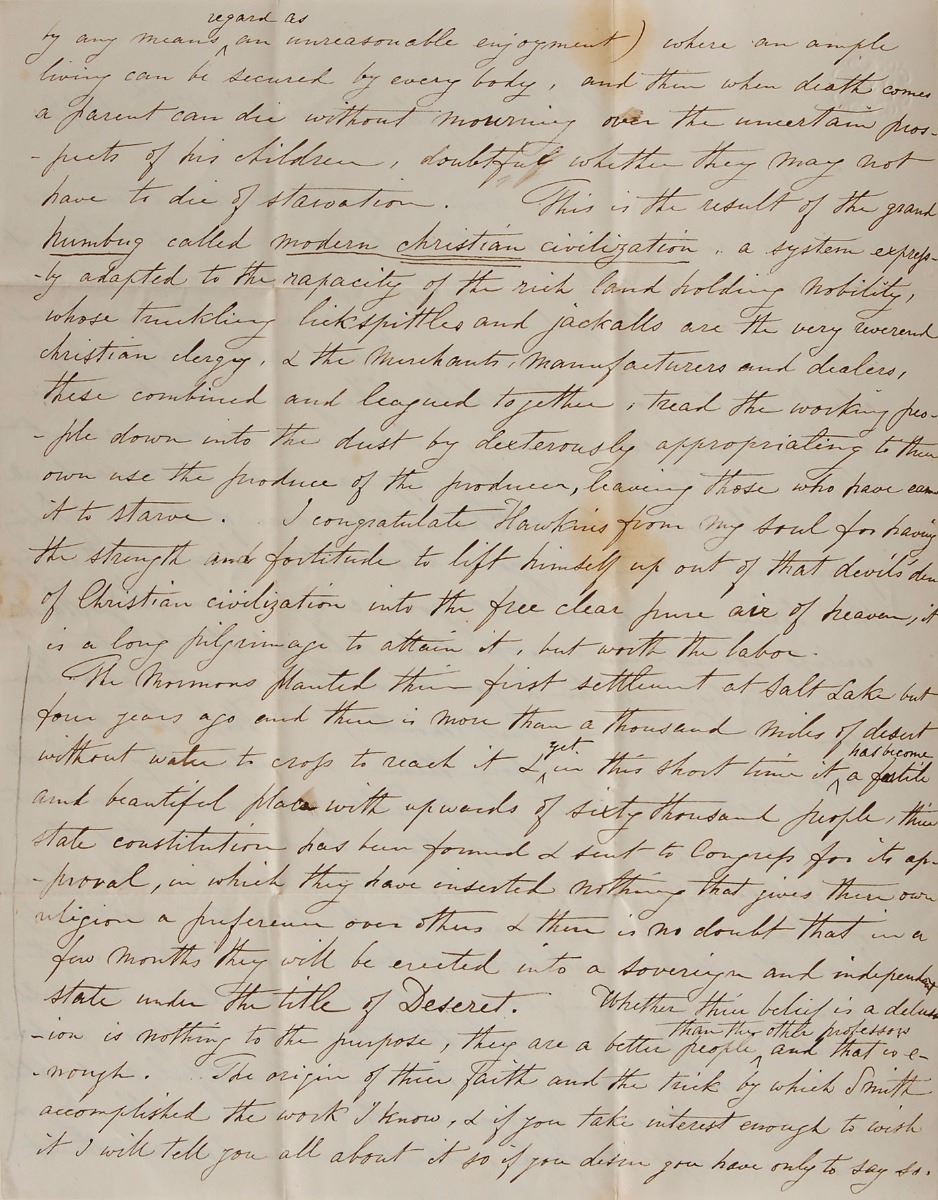 regard as
by any means ‸ an unreasonable enjoyment) where an ample
living can be secured by every body, and then when death comes
a parent can die without mourning over the uncertain pros-
-pects of his children, doubtful whether they may not
have to die of starvation. This is the result of the grand
humbug called modern christian civilization, a system express-
-ly adapted to the rapacity of the rich land holding nobility,
whose truckling lickspittles and jackalls are the very reverend
christian clergy, & the merchants, manufacturers and dealers,
these combined and leagued together, tread the working peo-
-ple down into the dust by dexterously appropriating to their
own use the produce of the producer, leaving those who have earn
it to starve. I congratulate Hawkins from my soul for having
the strength and fortitude to lift himself up out of that devil's den
of Christian civilization into the free clear pure air of heaven, it
is a long pilgrimage to attain it, but worth the labor.
The Mormons planted their first settlement at Salt Lake but
four years ago and there is more than a thousand miles of desert
yet has become
without water to cross to reach it & ‸ in this short time it ‸ a fertile
and beautiful place with upwards of sixty thousand people, their
state constitution has been formed & sent to Congress for its ap-
-proval, in which they have inserted nothing that gives their own
religion a preference over others & there is no doubt that in a
few months they will be erected into a sovereign and independent
state under the title of Deseret. Whether their belief is a delus
than the other professors
-ion is nothing to the purpose, they are a better people ‸ and that is e-
-nough. The origin of their faith and the trick by which Smith
accomplished the work I know, & if you take interest enough to wish
it I will tell you all about it so if you desire you have only to say so.